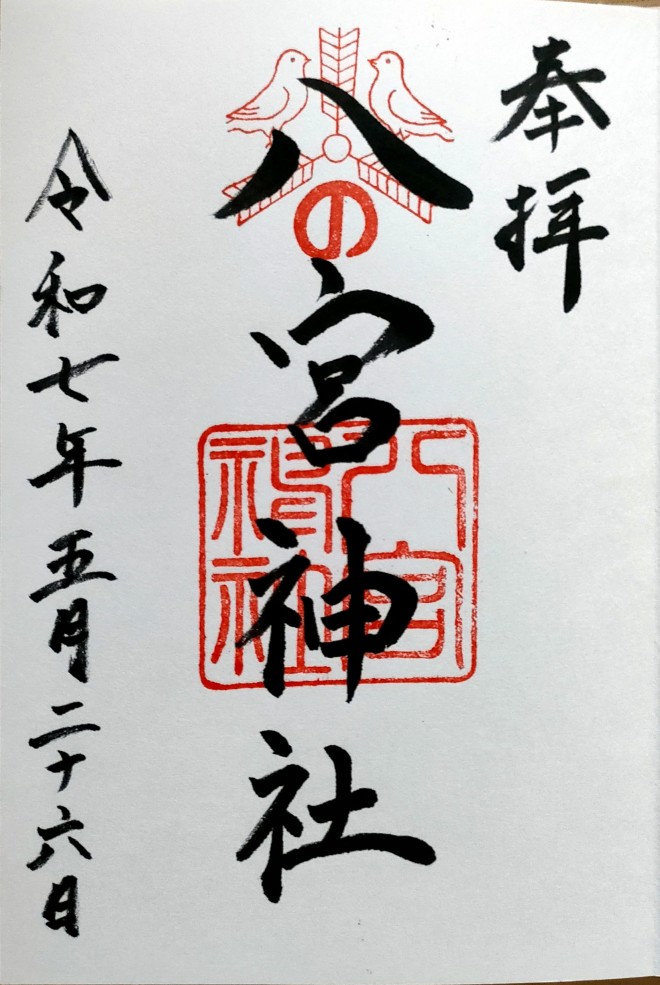 奉拝
八の宮神社
八宮神社
令和七年五月二十六日